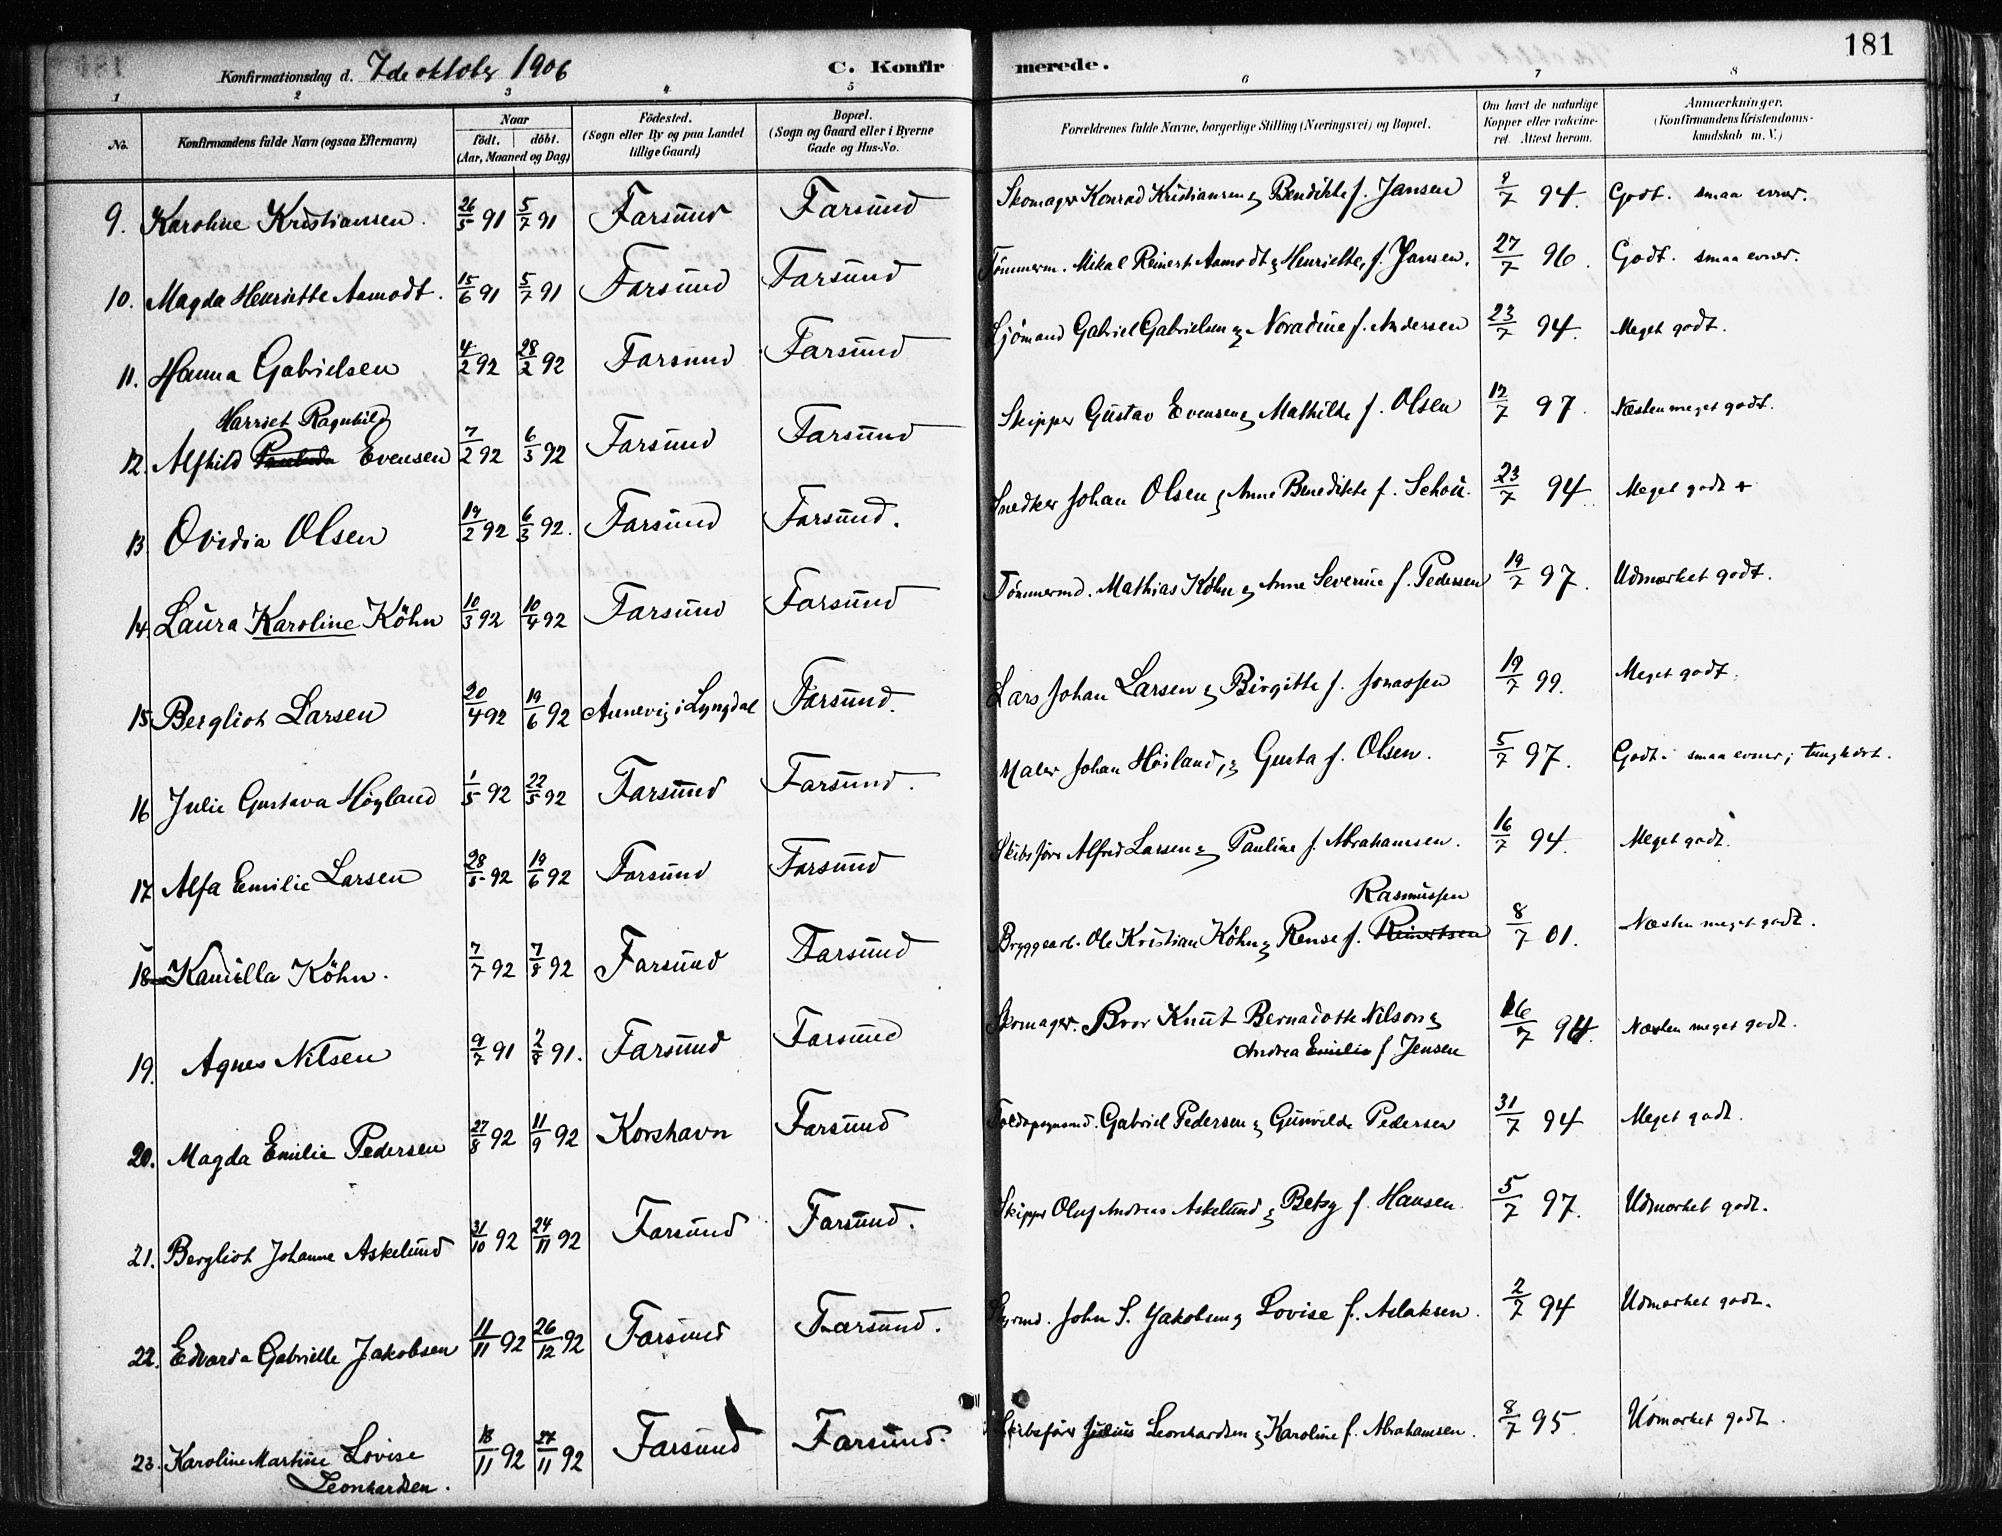 181
Konfirmationsdag d. 7de oktober 1906 C. Konfirmerede.
1 2 3 4 5 6 7 8
No. Konfirmandens fulde Navn (ogsaa Efternavn) Naar født. døbt. (Aar, Maaned og Dag) Fødested. (Sogn eller By og paa Landet tillige Gaard) Bopæl. (Sogn og Gaard eller i Byerne Gade og Hus-No. Forældrenes fulde Navne, borgerlige Stilling (Næringsvei) og Bopæl. Om havt de naturlige Kopper eller vakcineret. Attest herom. Anmærkninger. (Konfirmandens Kristendomskundskab m. V.)
9. Karoline Kristiansen. 26/5 91 5/7 91 Farsund Farsund Skomager Konrad Kristiansen & Bendikte f. Jansen 9/7 94. Godt. smaa evner.
10. Magda Henriette Aamodt. 15/6 91 5/7 91 Farsund Farsund Tømmerm. Mikal Reinert Aamodt & Henriette, f. Jansen. 27/7 96. Godt. smaa evner.
11. Hanna Gabrielsen 4/2 92 28/2 92 Farsund Farsund Sjømand Gabriel Gabrielsen & Noradine f. Andersen 23/7 94. Meget godt.
Harriet Ragnhild
12. Alfhild Evensen 7/2 92 6/3 92 Farsund Farsund Skipper Gustav Evensen & Mathilde f. Olsen 12/7 97. Næsten meget godt.
13. Ovidia Olsen 19/2 92 6/3 92. Farsund Farsund. Snedker Johan Olsen & Anne Benedikte f. Schou. 23/7 94. Meget godt +
14. Laura Karoline Köhn 10/3 92 10/4 92 Farsund Farsund Tömmermd. Mathias Köhn & Anne Severine f. Pedersen 19/7 97. Udmærket godt.
15. Bergliot Larsen 20/4 92 19/6 92 Annevig i Lyngdal Farsund. Lars Johan Larsen & Birgitte f. Jonassen 19/7 99. Meget godt.
16 Julie Gustava Høyland 1/5 92 22/5 92 Farsund Farsund. Maler Johan Höiland, & Gusta f. Olsen. 5/7 97. Godt. smaa evner; tunghørt.
17. Alfa Emilie Larsen 28/5 92 19/6 92 Farsund Farsund Skibsfører Alfred Larsen & Pauline f. Abrahamsen. 16/7 94. Meget godt.
Rasmussen
18 Kamilla Köhn. 7/7 92 7/8 92 Farsund Farsund Bryggearb. Ole Kristian Köhn & Rense f. Reinertsen 8/7 01. Næsten meget godt.
19. Agnes Nilsen 9/7 91 2/8 91. Farsund Farsund Skomager. Bror Knut Bernadotte Nilson & 16/7 94. Næsten meget godt.
Andrea Emilie f Jensen
20. Magda Emilie Pedersen 27/8 92 11/9 92 Korshavn Farsund Toldopsynsmd. Gabriel Pedersen & Gunvilde Pedersen 31/7 94 Meget godt.
21. Bergliot Johanne Askelund 31/10 92 24/11 92 Farsund Farsund. Skipper Oluf Andreas Askelund & Betsy f. Hansen. 5/7 97. Udmærket godt.
22. Edvarda Gabrielle Jakobsen 11/11 92 26/12 92 Farsund Farsund. Styrmd. John S. Jakobsen & Lovise f. Aslaksen. 2/7 94 Udmærket godt.
23. Karoline Martine Lovise 18/11 92 27/11 92 Farsund Farsund. Skibsfører Julius Leonhardsen & Karoline f. Abrahamsen. 8/7 95. Udmærket godt.
Leonhardsen.